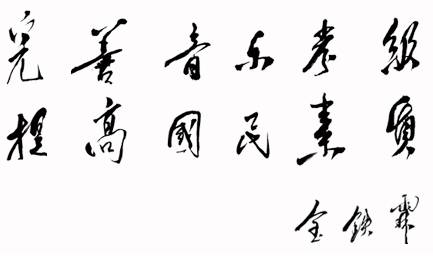 完善音乐考级
提高國民素质
金铁霖